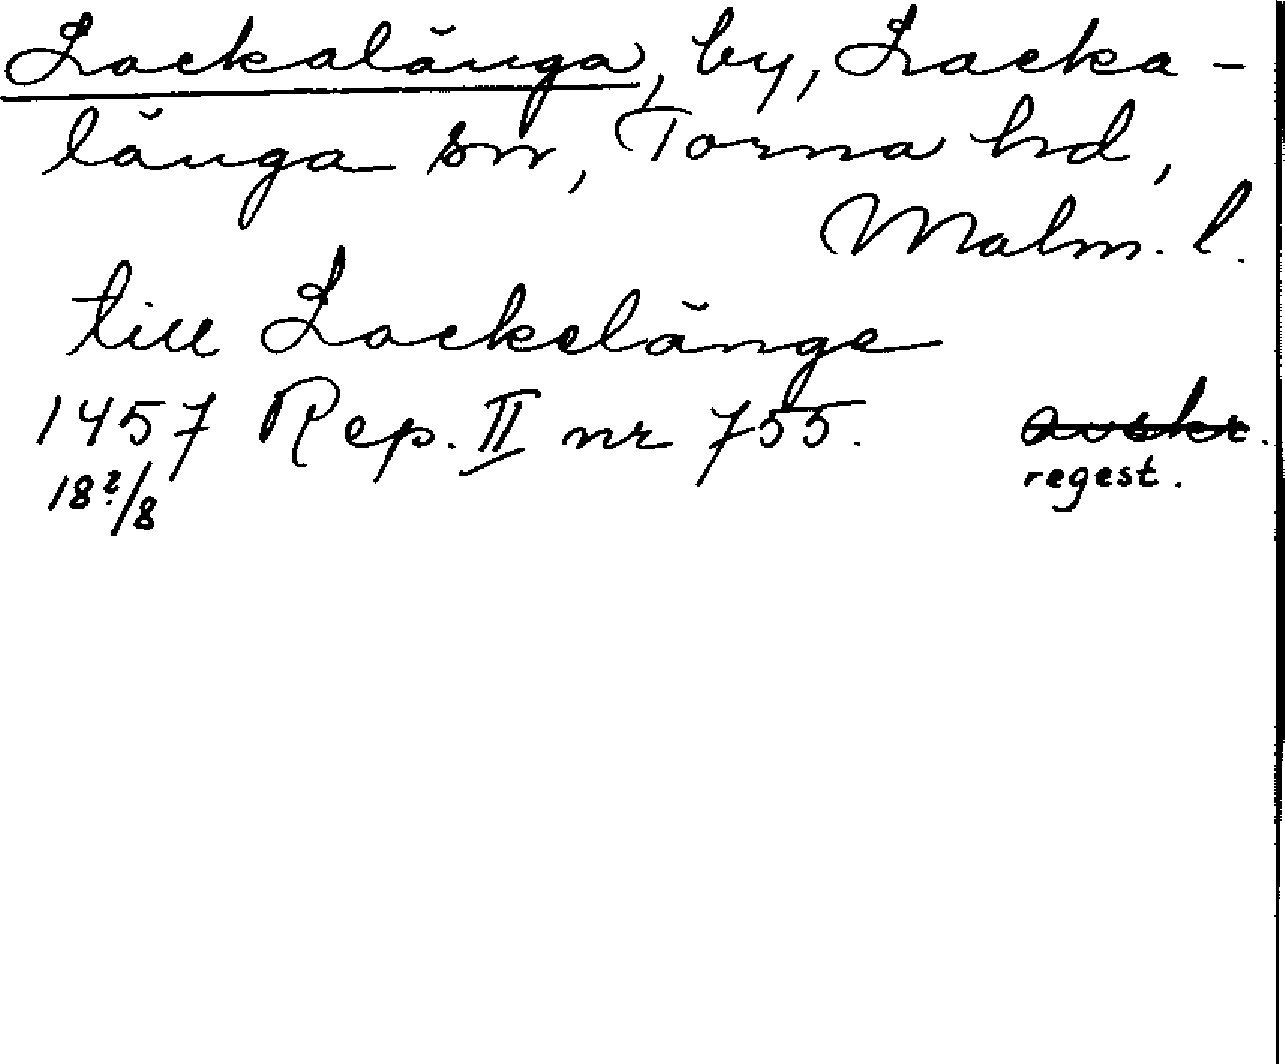 Lackalänga, by, Lacka-
länga sn, Torna hd,
Malm. l.
till Lackelänge
1457 Rep. II nr 755. avskr.
18?/8 regest.